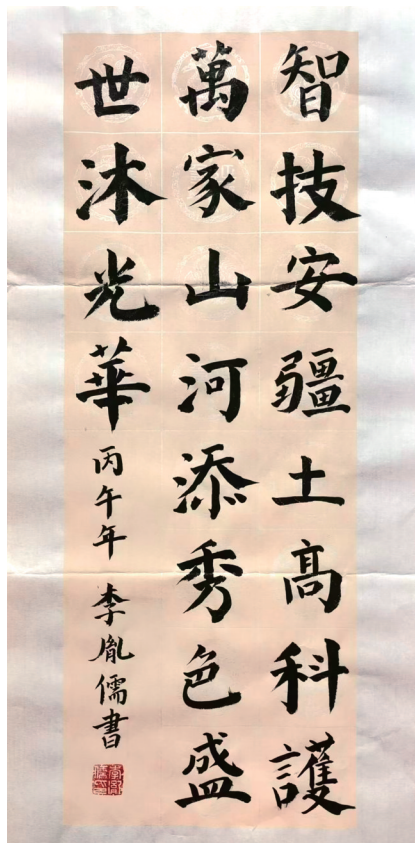 智技安疆土高科護
萬家山河添秀色盛
世沐光華
丙午年 李胤儒書